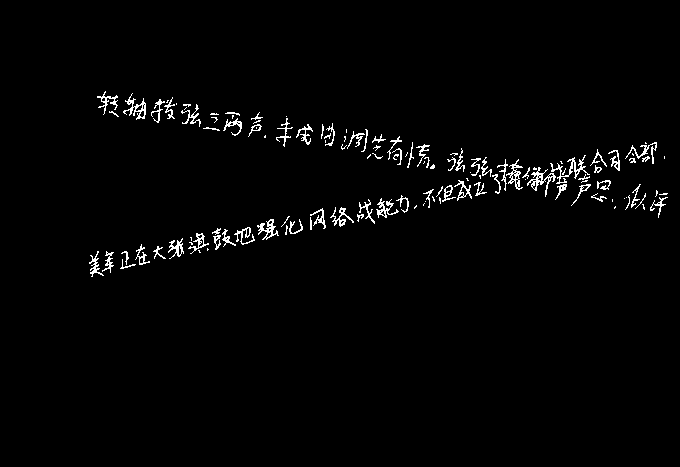 转轴拨弦三两声,未成曲调先有情。弦弦掩抑声声思,似
美军正在大张旗鼓地强化网络战能力,不但成立了网络战联合司令部,